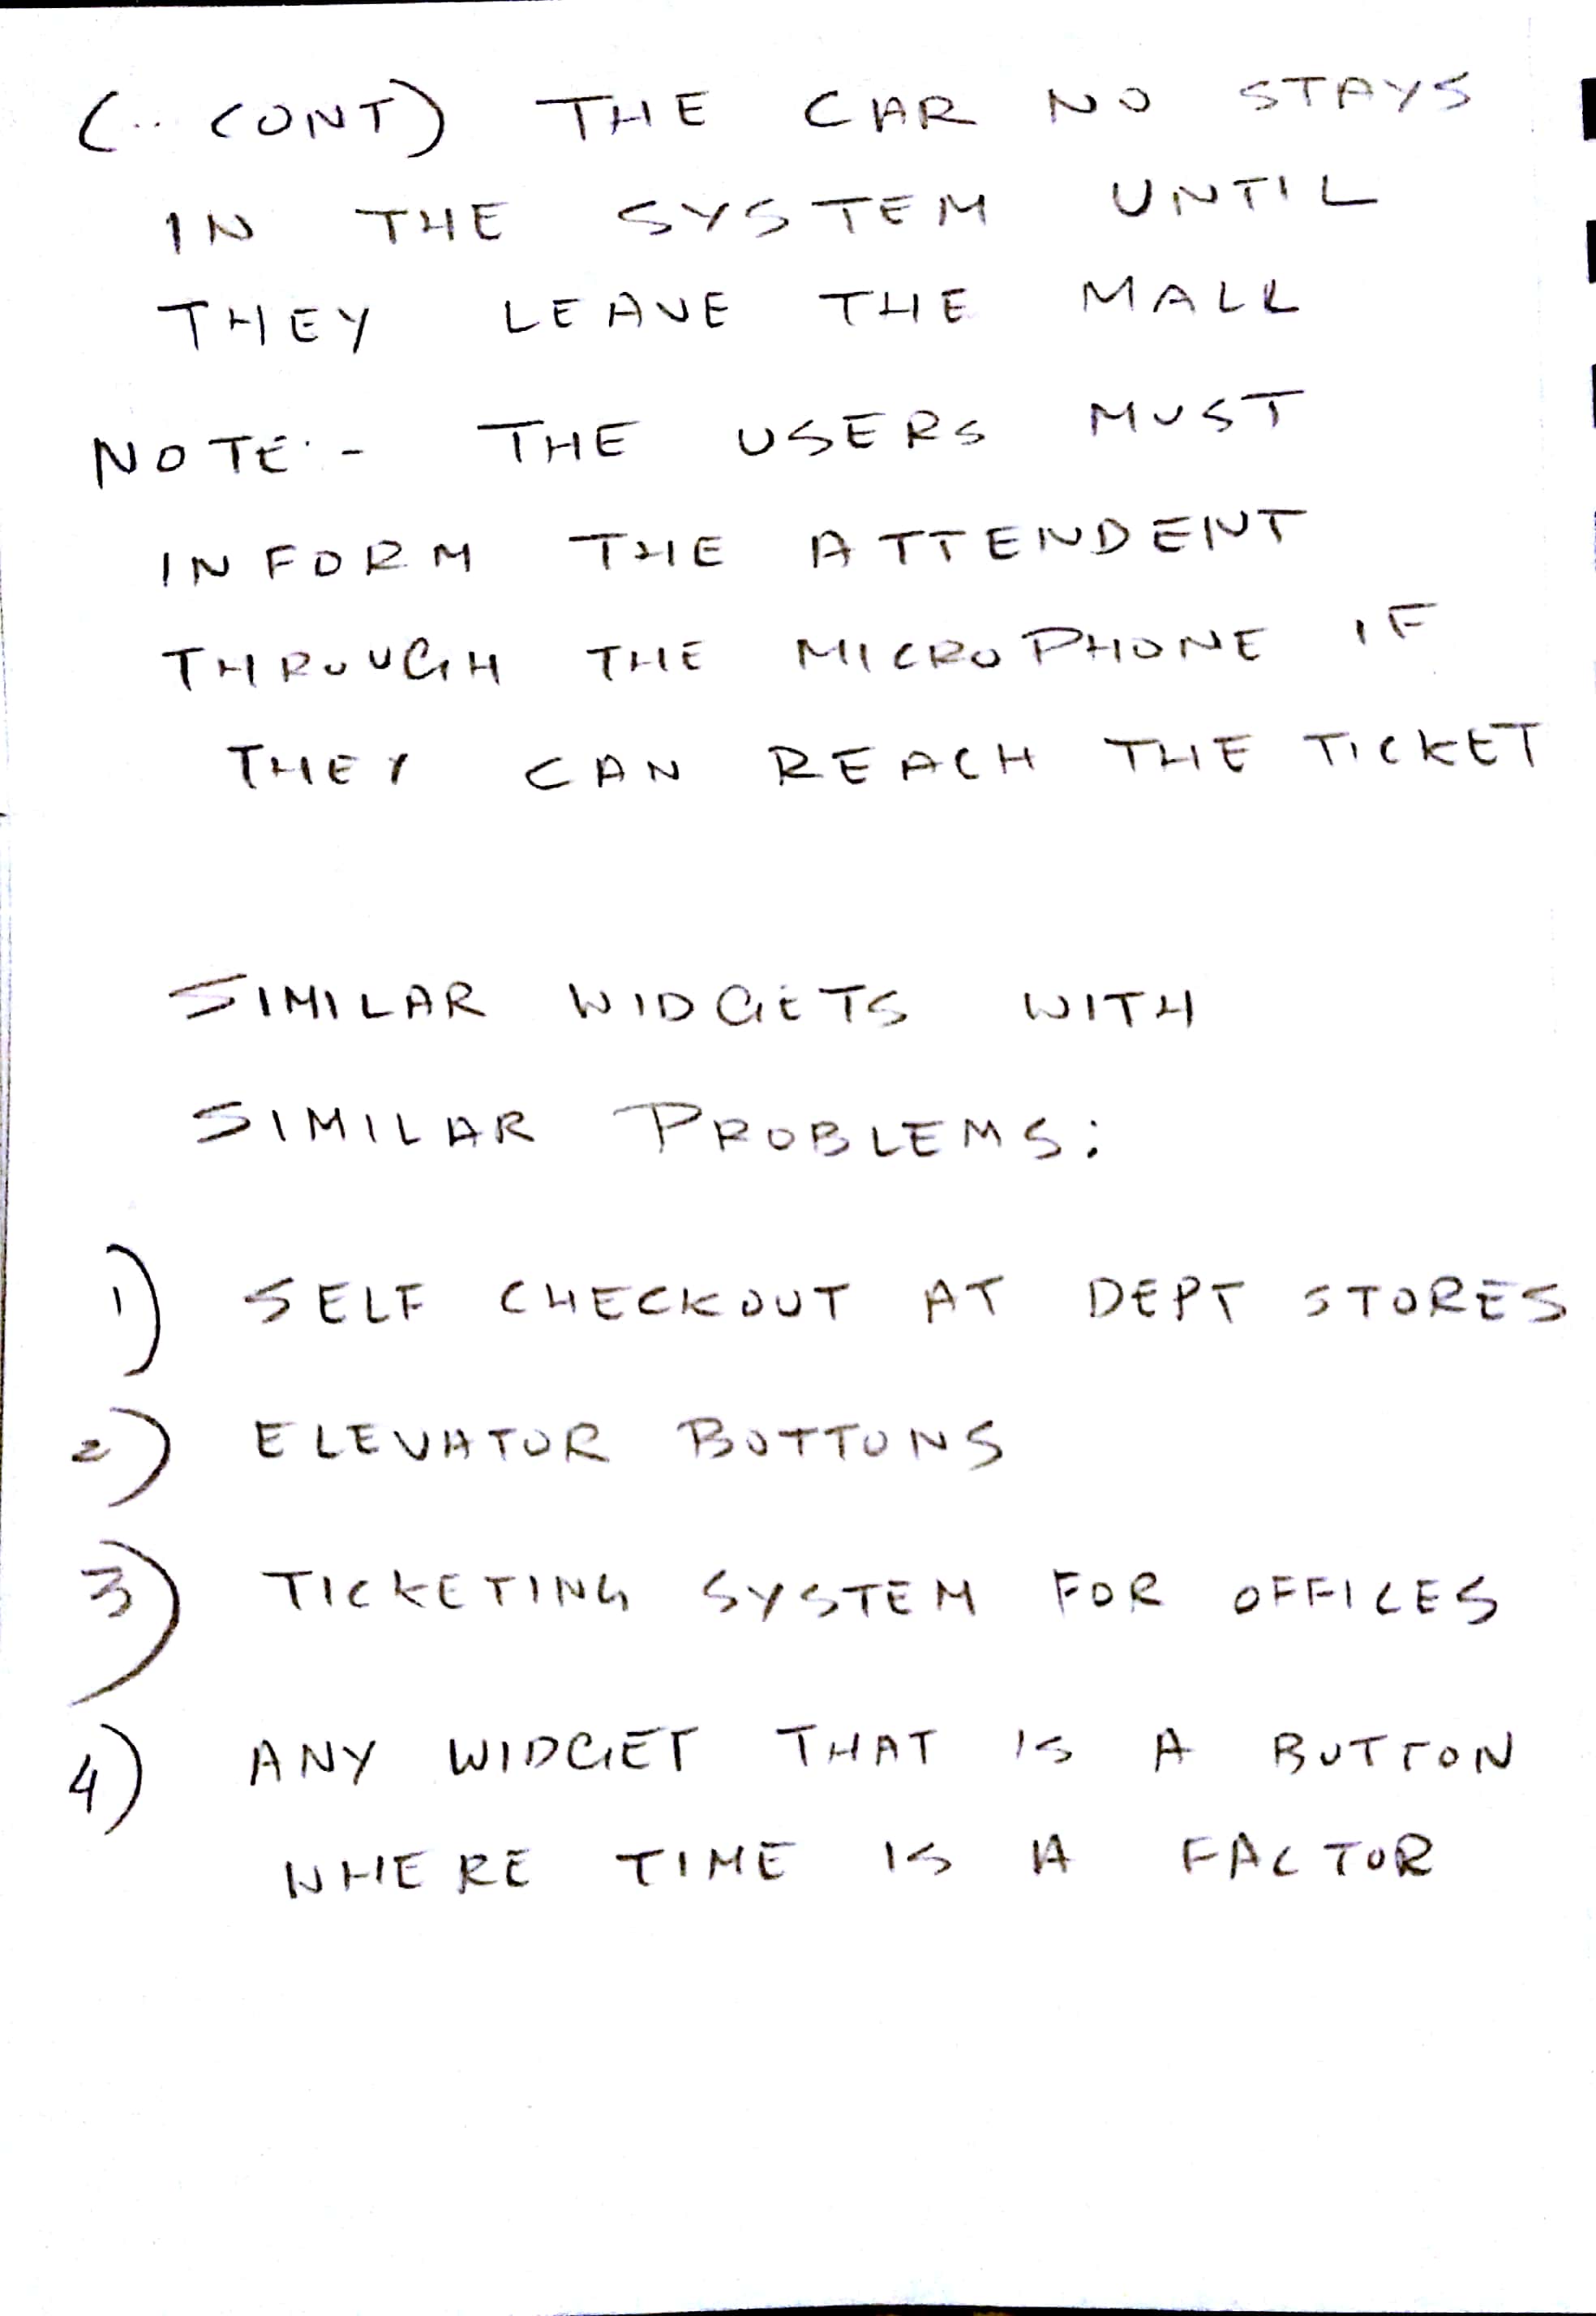 (.. CONT) THE CAR NO STAYS
IN THE SYSTEM UNTIL
THEY LEAVE THE MALL
NOTE:- THE USERS MUST
INFORM THE ATTENDENT
THROUGH THE MICROPHONE IF
THEY CAN REACH THE TICKET
SIMILAR WIDGETS WITH
SIMILAR PROBLEMS:
1) SELF CHECKOUT AT DEPT STORES
2) ELEVATOR BUTTONS
3) TICKETING SYSTEM FOR OFFICES
4) ANY WIDGET THAT IS A BUTTON
WHERE TIME IS A FACTOR